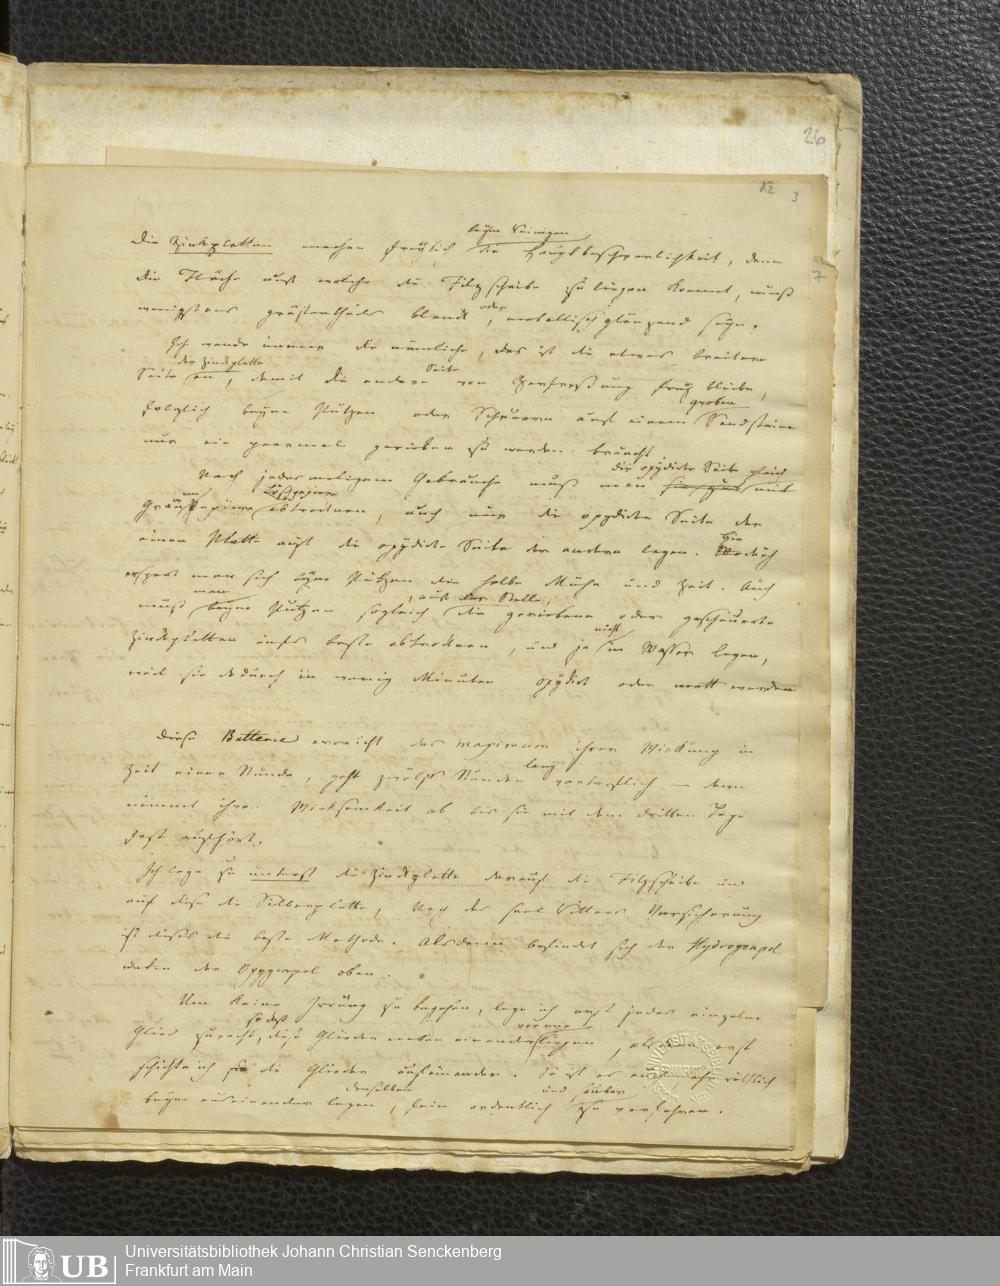 26
12 3
beym Reinigen
Die Zinkplatten machen freylich die Hauptbeschwerlichkeit, denn
die Fläche auf welche die Filzscheibe zu liegen kommt, muß
wenigstens größtentheils blank, oder metallisch glänzend seyn.
7
Ich wende immer die nämliche, das ist die etwas breitere
der Zinkplatte
Seite an, damit die andere Seite von Zerfressung frey bleibe,
groben
folglich beym Putzen oder Scheuern auf einem Sandsteine
nur ein paarmal gerieben zu werden braucht.
die oxydirte Seite gleich
Nach jedesmaligem Gebrauche muß man mit
Löschpapiere
abtrocknen, auch nur die oxydirte Seite der
einen Platte auf die oxydirte Seite der andern legen. Hiedurch
erspart man sich beym Putzen die halbe Mühe und Zeit. Auch
man , auf der Stelle,
muß beym Putzen sogleich die geriebene oder gescheuerte
nicht
Zinkplatten aufs beste abtrocknen, und ja im Wasser legen,
weil sie dadurch in wenig Minuten oxydirt oder matt werden
Diese Batterie erreicht das maximum ihrer Wirkung in
Zeit einer Stunde, geht zwölf Stunden lang vortreflich — dann
nimmt ihre Wirksamkeit ab bis sie mit dem dritten Tage
fast aufhört.
Ich lege zu unterst die Zinkplatte darauf die Filzscheibe und
auf diese die Silberplatte, Nach des Herrn Ritters Versicherung
ist dieses die beste Methode. Alsdann befindet sich der Hydrogenpol
unten der Oxygenpol oben.
Um keine Irrung zu begehen, lege ich erst jedes einzelne
so daß vor mir
Glied zurecht, diese Glieder neben einander liegen, alsdann erst
schichte ich die Glieder aufeinander. So ist es auch sehr räthlich
derselben und sauber
beym auseinander legen, fein ordentlich zu verfahren.
UNIVERSITÄTSBIBLIOTHEK FRANKFURT AM MAIN
UB
Universitätsbibliothek Johann Christian Senckenberg
Frankfurt am Main